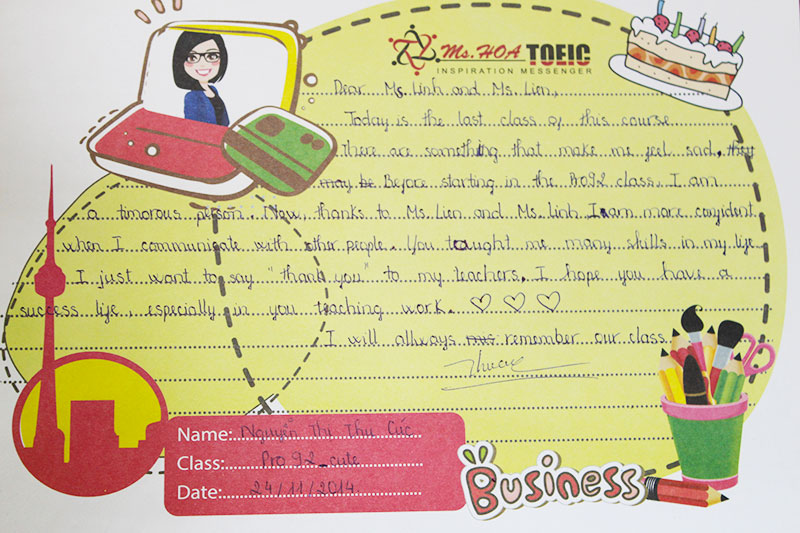 Ms. HOA TOEIC
INSPIRATION MESSENGER
Dear Ms. Linh and Ms. Lien,
Today is the last class of this course
there are something that make me feel sad, they
may be Before starting in the Pro92 class, I am
a timorous person. Now, thanks to Ms. Lien and Ms. Linh I am more confident
when I communicate with other people. You taught me many skills in my life
I just want to say "thank you" to my teachers. I hope you have a
success life, especially in you teaching work. ♡ ♡ ♡
I will allways remember our class
Name: Nguyễn Thị Thu Cúc
Class: Pro 92_cute
Date: 24/11/2014
Business